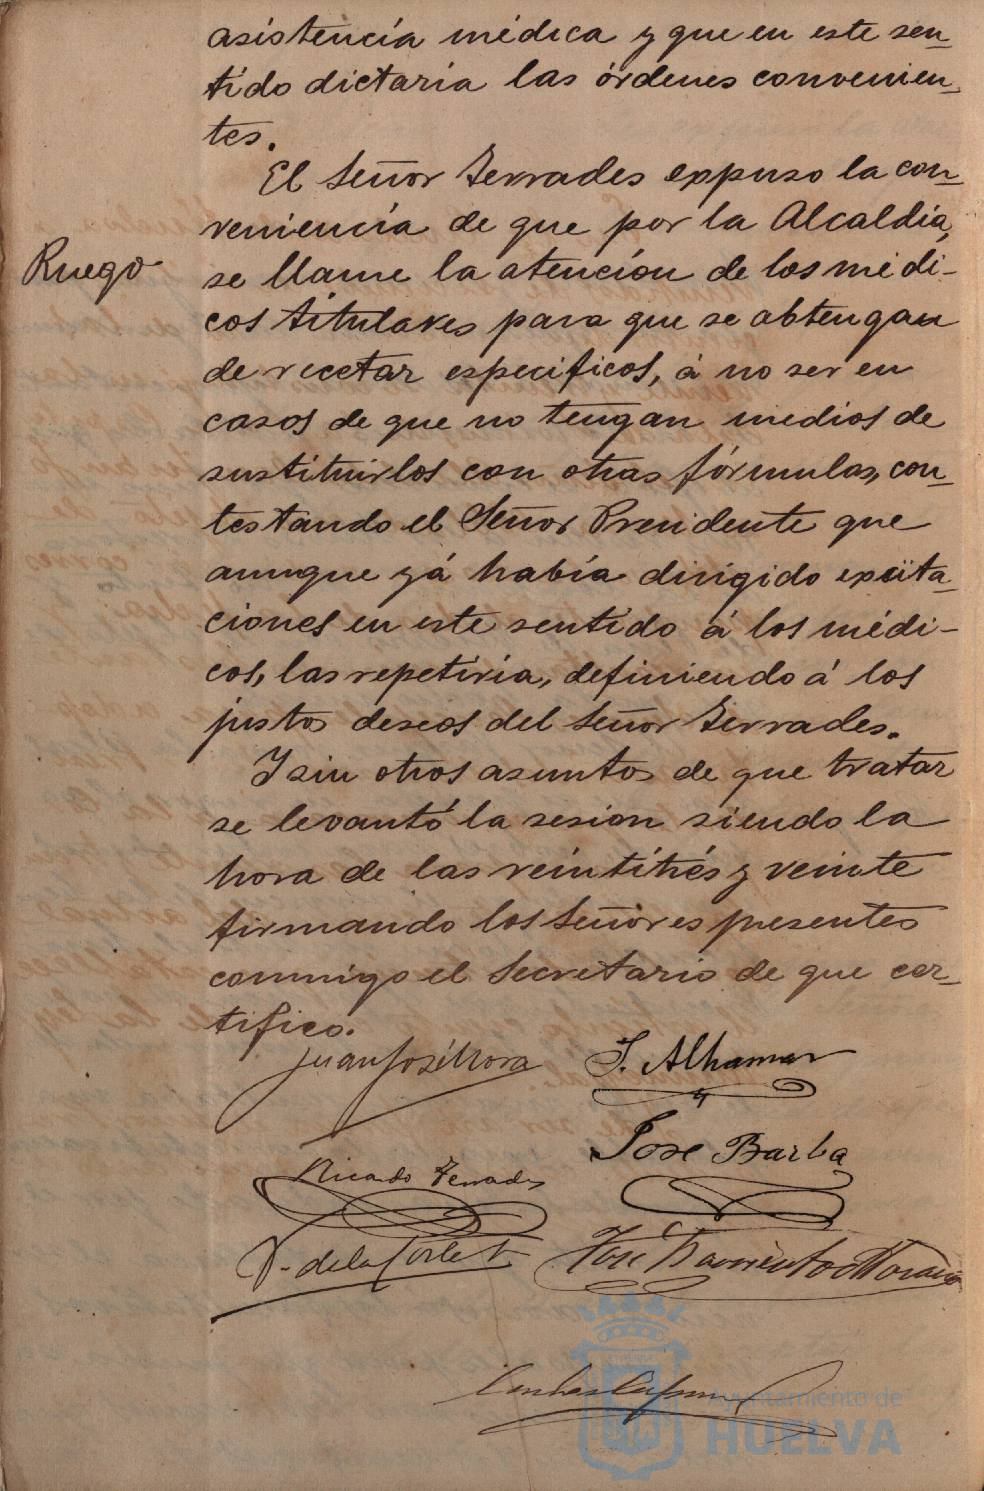 asistencia médica y que en este sen-
tido dictaría las órdenes convenien-
tes.
El Señor Terrades expuso la con-
veniencia de que por la Alcaldía,
Ruego
se llame la atención de los médi-
cos titulares para que se abtengan
de recetar específicos, á no ser en
casos de que no tengan medios de
sustituirlos con otras fórmulas, con-
testando el Señor Presidente que
aunque yá había dirigido exita-
ciones en este sentido á los médi-
cos, las repetiría, definiendo á los
justos deseos del Señor Terrades.
Y sin otros asuntos de que tratar
se levantó la sesion siendo la
hora de las veintitrés y veinte
firmando los Señores presentes
conmigo el Secretario de que cer-
tifico.
Juan José Mora
J. Alhamar
José Barba
Ricardo Terrades
V. de la Corte
José Barriento
Ayuntamiento de
HUELVA